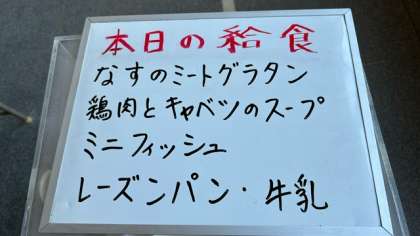 本日の給食
なすのミートグラタン
鶏肉とキャベツのスープ
ミニフィッシュ
レーズンパン・牛乳